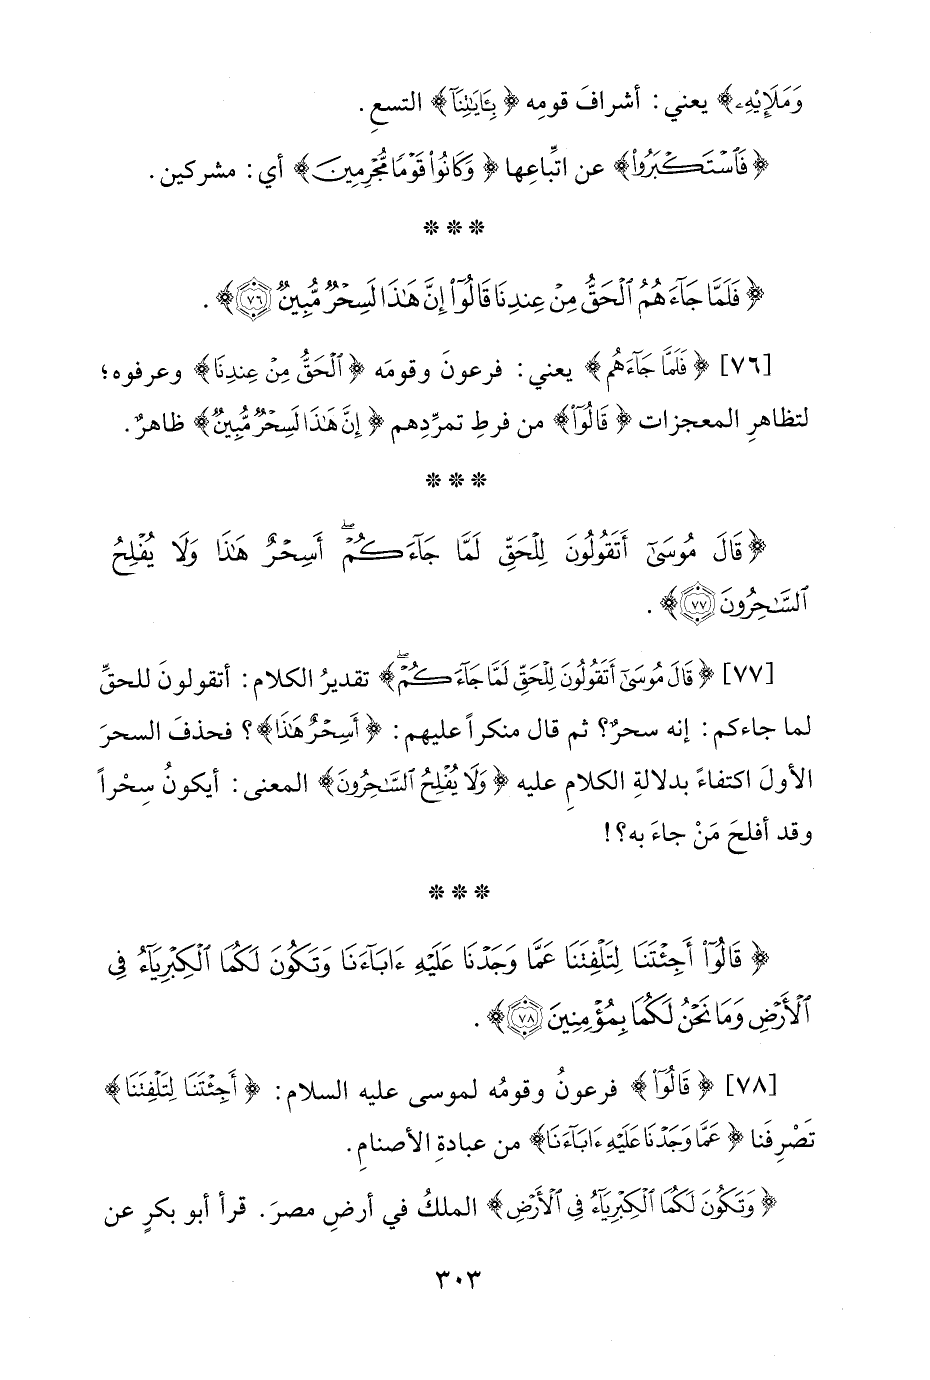 وَمَلَإِيْهِۦ﴾ يعني: أشرافَ قومِه ﴿بِـَٔايَٰتِنَا﴾ التسعِ.
﴿فَٱسْتَكْبَرُوا۟﴾ عن اتِّباعِها ﴿وَكَانُوا۟ قَوْمًا مُّجْرِمِينَ﴾ أي: مشركين.
* * *
﴿فَلَمَّا جَآءَهُمُ ٱلْحَقُّ مِنْ عِندِنَا قَالُوٓا۟ إِنَّ هَٰذَا لَسِحْرٌ مُّبِينٌ ٧٦﴾.
[٧٦] ﴿فَلَمَّا جَآءَهُم﴾ يعني: فرعونَ وقومَه ﴿ٱلْحَقُّ مِنْ عِندِنَا﴾ وعرفوه؛
لتظاهرِ المعجزات ﴿قَالُوٓا۟﴾ من فرطِ تمرِّدِهم ﴿إِنَّ هَٰذَا لَسِحْرٌ مُّبِينٌ﴾ ظاهرٌ.
* * *
﴿قَالَ مُوسَىٰٓ أَتَقُولُونَ لِلْحَقِّ لَمَّا جَآءَكُمْ ۖ أَسِحْرٌ هَٰذَا وَلَا يُفْلِحُ
ٱلسَّٰحِرُونَ ٧٧﴾.
[٧٧] ﴿قَالَ مُوسَىٰٓ أَتَقُولُونَ لِلْحَقِّ لَمَّا جَآءَكُمْ ۖ﴾ تقديرُ الكلام: أتقولونَ للحقِّ
لما جاءكم: إنه سحرٌ؟ ثم قال منكراً عليهم: ﴿أَسِحْرٌ هَٰذَا﴾؟ فحذفَ السحرَ
الأولَ اكتفاءً بدلالةِ الكلامِ عليه ﴿وَلَا يُفْلِحُ ٱلسَّٰحِرُونَ﴾ المعنى: أيكونُ سِحْراً
وقد أفلحَ مَنْ جاءَ به؟!
* * *
﴿قَالُوٓا۟ أَجِئْتَنَا لِتَلْفِتَنَا عَمَّا وَجَدْنَا عَلَيْهِ ءَابَآءَنَا وَتَكُونَ لَكُمَا ٱلْكِبْرِيَآءُ فِى
ٱلْأَرْضِ وَمَا نَحْنُ لَكُمَا بِمُؤْمِنِينَ ٧٨﴾.
[٧٨] ﴿قَالُوٓا۟﴾ فرعونُ وقومُه لموسى عليه السلام: ﴿أَجِئْتَنَا لِتَلْفِتَنَا﴾
تَصْرِفَنا ﴿عَمَّا وَجَدْنَا عَلَيْهِ ءَابَآءَنَا﴾ من عبادةِ الأصنامِ.
﴿وَتَكُونَ لَكُمَا ٱلْكِبْرِيَآءُ فِى ٱلْأَرْضِ﴾ الملكُ في أرضِ مصرَ. قرأ أبو بكرٍ عن
٣٠٣